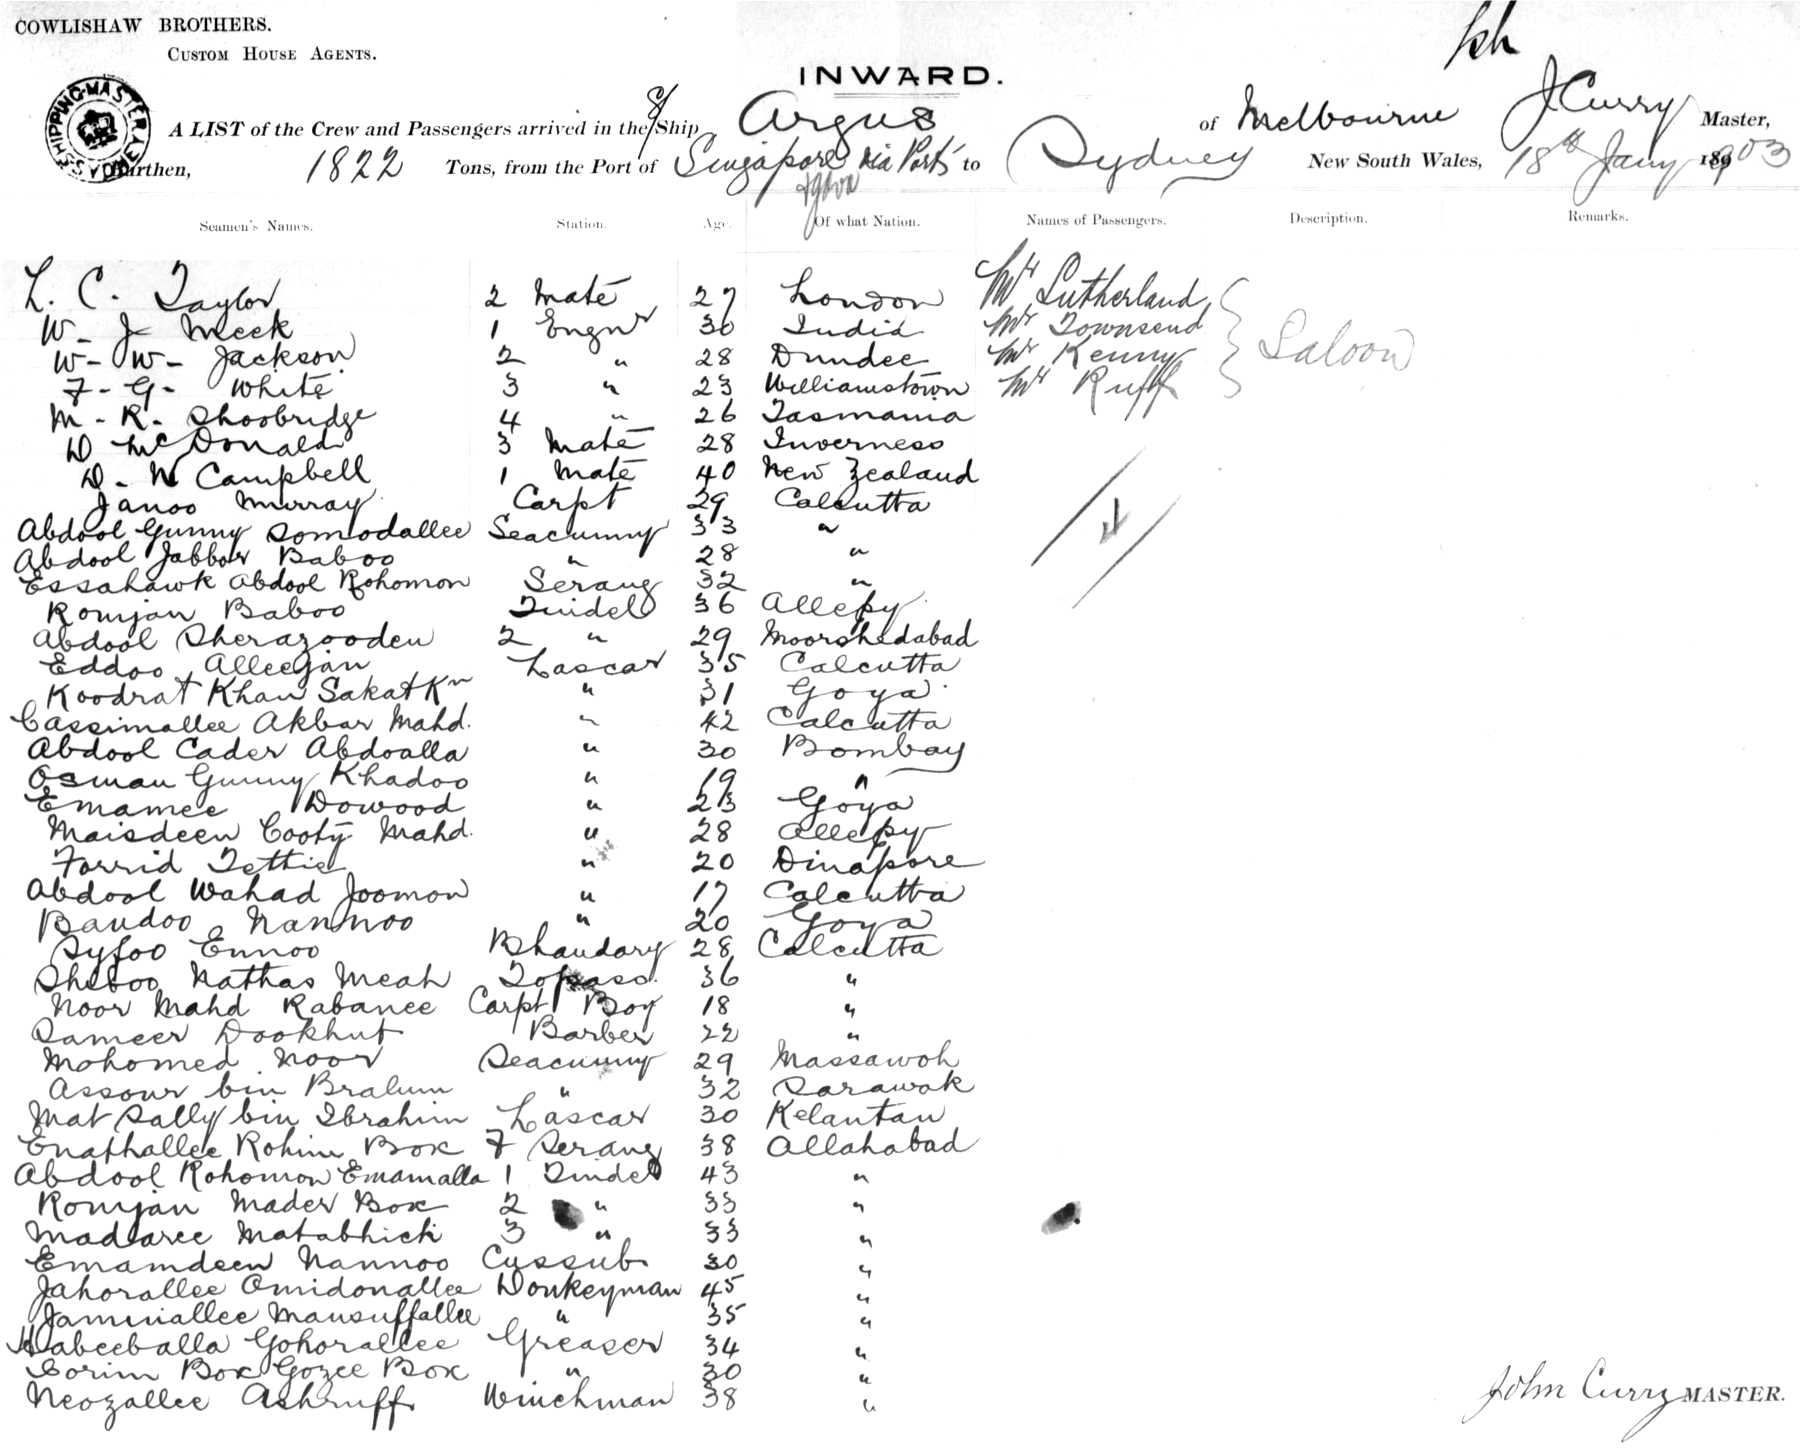 COWLISHAW BROTHERS.
CUSTOM HOUSE AGENTS.
INWARD.
SHIPPING MASTER SYDNEY
A LIST of the Crew and Passengers arrived in the S/Ship Argus of Melbourne J Curry Master,
Burthen, 1822 Tons, from the Port of Singapore via Ports to Sydney New South Wales, 18th Jany 1903
& Java
Seamen's Names. Station. Age. Of what Nation. Names of Passengers. Description. Remarks.
L. C. Taylor 2 Mate 27 London Mr Sutherland
W - J Meek 1 Engnr 30 India Mr Townsend
W - W - Jackson 2 " 28 Dundee Mr Kenny Saloon
F - G - White 3 " 23 Williamstown Mr Ruff
M - R - Shoobridge 4 " 26 Tasmania
D McDonald 3 Mate 28 Inverness
D - N Campbell 1 Mate 40 New Zealand
Janoo Murray Carpt 29 Calcutta
Abdool Gunny Somodallee Seacunny 33 "
Abdool Jabbar Baboo " 28 "
Essahawk Abdool Rohomon Serang 32 "
Romjan Baboo Tindel 36 Allepy
Abdool Sherazooden 2 " 29 Moorshedabad
Eddoo Alleejan Lascar 35 Calcutta
Koodrat Khan Sakat Kn " 31 Goya
Cassimallee Akbar Mahd. " 42 Calcutta
Abdool Cader Abdoalla " 30 Bombay
Osman Gunny Khadoo " 19 "
Emamee Dowood " 23 Goya
Maisdeen Cooty Mahd. " 28 Allepy
Forrid Tettie " 20 Dinapore
Abdool Wahad Joomon " 17 Calcutta
Bandoo Nannoo " 20 Goya
Syfoo Ennoo Bhandary 28 Calcutta
Sheboo Nathas Meah Topass 36 "
Noor Mahd Rabanee Carpt Boy 18 "
Sameer Dookhut Barber 22 "
Mohomed Noor Seacunny 29 Massawoh
Assour bin Bralum " 32 Sarawak
Mat Sally bin Ibrahim Lascar 30 Kelantan
Enathallee Rohim Box F Serang 38 Allahabad
Abdool Rohomon Emamalla 1 Tindel 43 "
Romjan Mader Box 2 " 33 "
Madaree Matabhick 3 " 33 "
Emamdeen Nannoo Cussub 30 "
Jahorallee Omidonallee Donkeyman 45 "
Jamniallee Mansuffallee " 35 "
Habeeballa Gohorallee Greaser 34 "
Corim Box Gozee Box " 30 "
Neozallee Ashruff Winchman 38 "
John Curry MASTER.